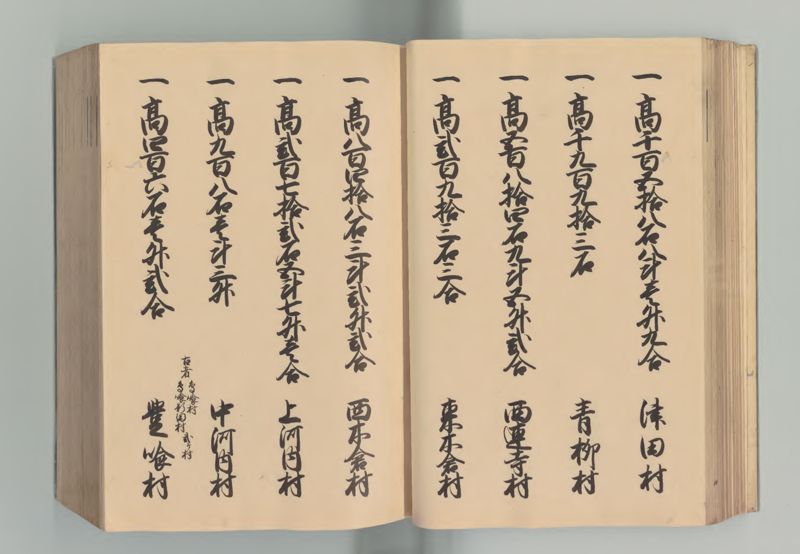 一 高千百五拾八石八斗壱升九合 津田村
一 高千九百九拾三石 青柳村
一 高五百八拾四石九斗五升弐合 西蓮寺村
一 高弐百九拾三石三合 東木倉村
一 高八百四拾八石三斗弐升弐合 西木倉村
一 高弐百七拾弐石五斗七升壱合 上河内村
一 高九百八石壱斗三升 中河内村
古者 鳥喰村 鳥喰新田村 弐ヶ村
一 高四百六石壱升弐合 豊喰村